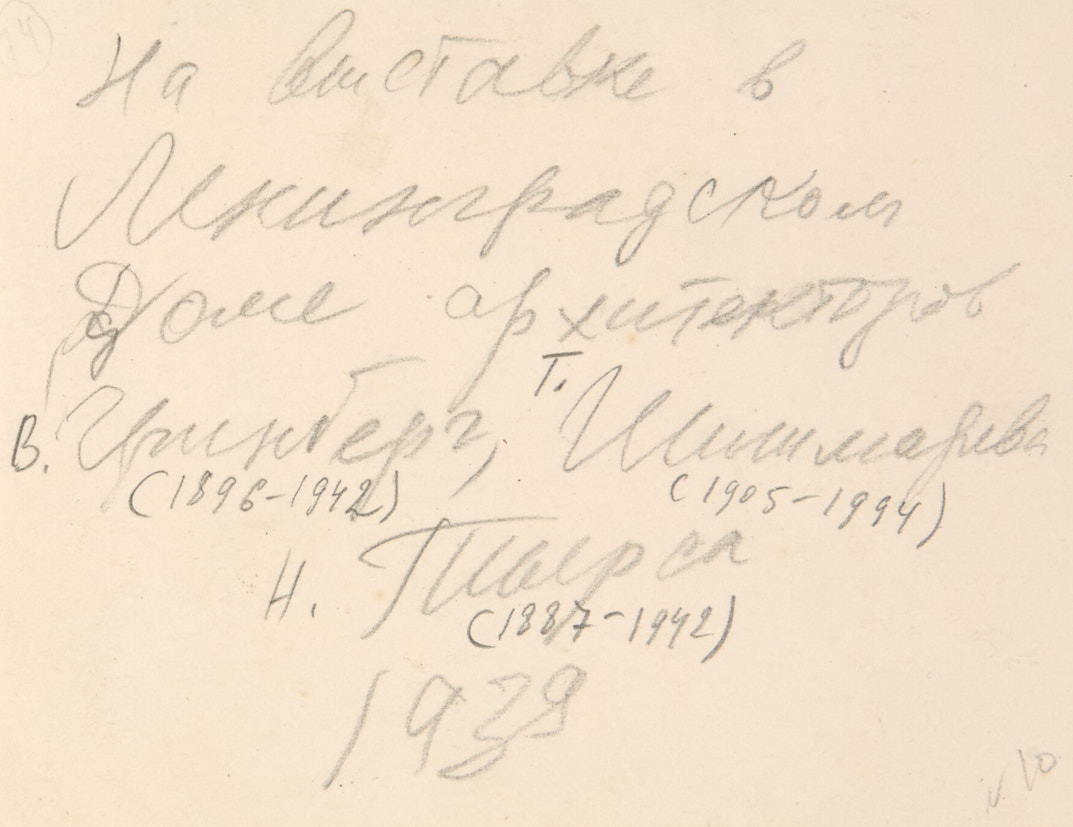 На выставке в
Ленинградском
Доме архитекторов
Т.
В. Цинберг, Шишмарева
(1896-1942) (1905-1994)
Н. Тырса
(1887-1942)
1939